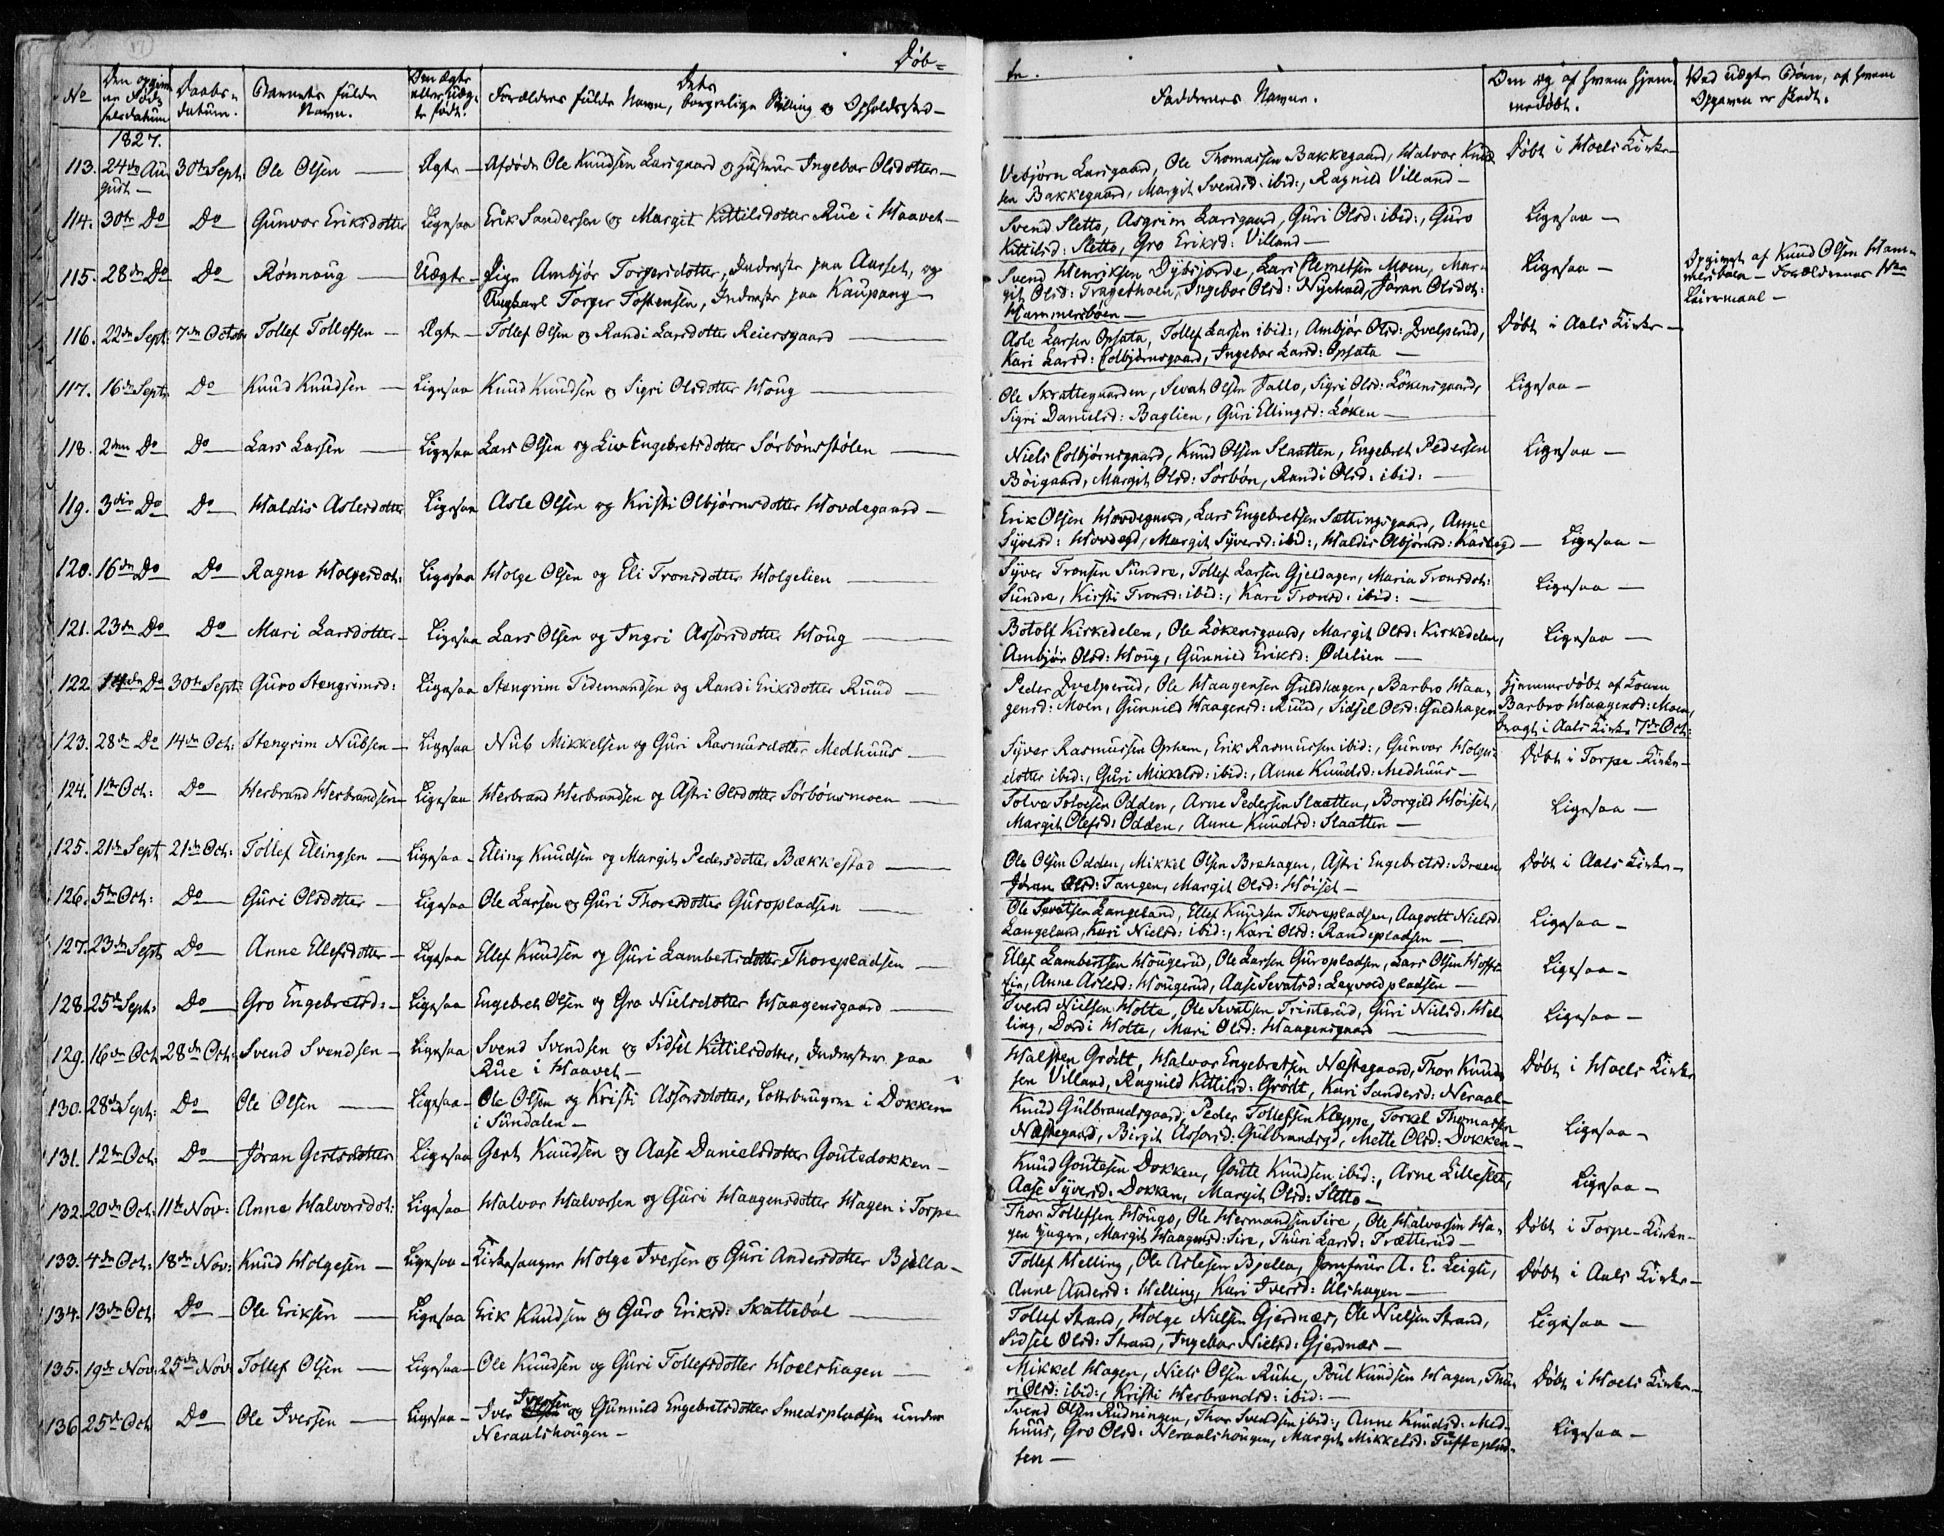 Døb=
te.
No
Den opgivne Fødselsdatum
Daabsdatum.
Barnets fulde Navn.
Om Ægte eller Uægte født.
Forældres fulde Navn, Dets borgerlige Stilling og Opholdssted
Faddernes Navne.
Om og af hvem hjemmedøbt.
Ved uægte Børn, af hvem Opgaven er skedt.
1827.
113. 24de August 30te Sept: Ole Olsen Ægte Afdøde Ole Knudsen Larsgaard og Hustrue Ingebor Olsdotter
Vebjørn Larsgaard, Ole Thomassen Bakkegaard, Halvor Knud-
sen Bakkegaard, Margit Svendsd: ibid:, Ragnild Villand
Døbt i Hoels Kirke
114. 30te Do Do Gunvor Eriksdotter Ligesaa Erik Sandersen og Margit Kittilsdotter Rue i Haavet
Svend Sletto, Asgrim Larsgaard, Guri Olsd: ibid:, Guro
Kittilsd: Sletto, Gro Eriksd: Villand
Ligesaa
115. 28de Do Do Rønnoug Uægte Pige Ambjør Torgersdotter, Inderste paa Aarset, og
Ungkarl Torger Tostensen, Inderste paa Kaupang
Svend Henriksen Dybsjorde, Lars Clemetsen Moen, Mar-
git Olsd: Tragethoen, Ingebor Olsd: Nyehuud, Jøran Olsdot:
Hammersbøen
Ligesaa
Opgivet af Knud Olsen Ham-
mersbøen Forældrenes 1ste
Leiermaal
116. 22de Sept: 7de Octob: Tollef Tollefsen Ægte Tollef Olsen og Randi Larsdotter Reiersgaard
Asle Larsen Opsata, Tollef Larsen ibid:, Ambjør Olsd: Qvelperud,
Kari Larsd: Colbjørnsgaard, Ingebor Larsd: Opsata
Døbt i Aals Kirke
117. 16de Sept: Do Knud Knudsen Ligesaa Knud Knudsen og Sigri Olsdotter Houg
Ole Skrattegaarden, Sevat Olsen Jallo, Sigri Olsd: Løkensgaard,
Sigri Danielsd: Baglien, Guri Ellingsd: Løken
Ligesaa
118. 2den Do Do Lars Larsen Ligesaa Lars Olsen og Liv Engebretsdotter Sørbønsstølen
Niels Colbjørnsgaard, Knud Olsen Slaatten, Engebret Pedersen
Bøigaard, Margit Olsd: Sørbøn, Randi Olsd: ibid:
Ligesaa
119. 3die Do Do Haldis Aslesdotter Ligesaa Asle Olsen og Kristi Olbjørnsdotter Hovdegaard
Erik Olsen Hovdegaard, Lars Engebretsen Sættingsgaard, Anne
Syversd: Hovdegd, Margit Syversd: ibid:, Haldis Olbjørnsd:
Ligesaa
120. 16de Do Do Ragne Holgesdot: Ligesaa Holge Olsen og Eli Tronsdotter Holgelien
Syver Tronsen Sundre, Tollef Larsen Gjeldagen, Maria Tronsdot:
Sundre, Kirsti Tronsd: ibid:, Kari Tronsd: ibid:
Ligesaa
121. 23de Do Do Mari Larsdotter Ligesaa Lars Olsen og Ingri Assorsdotter Houg
Botolf Kirkedelen, Ole Løkensgaard, Margit Olsd: Kirkedelen,
Ambjør Olsd: Houg, Gunnild Eriksd: Ødelien
Ligesaa
122. 14de Do 30te Sept: Guro Stengrimsd: Ligesaa Stengrim Tidemandsen og Randi Eriksdotter Ruud
Peder Qvelperud, Ole Haagensen Guldhagen, Barbro Haa-
gensd: Moen, Gunnild Haagensd: Ruud, Sidsel Olsd: Guldhagen
Hjemmedøbt af Konen
Barbro Haagensd: Moen,
bragt i Aals Kirke 7de Oct:
123. 28de Do 14de Oct: Stengrim Nubsen Ligesaa Nub Mikkelsen og Guri Rasmusdotter Medhuus
Syver Rasmussen Ophem, Erik Rasmussen ibid:, Gunvor Holges-
dotter ibid:, Guri Mikkelsd: ibid:, Anne Knudsd: Medhuus
Døbt i Torpe Kirke
124. 1ste Oct: Do Herbrand Herbrandsen Ligesaa Herbrand Herbrandsen og Astri Olsdotter Sørbønsmoen
Solve Solvesen Odden, Arne Pedersen Slaatten, Borgild Høiset,
Margit Olefsd: Odden, Anne Knudsd: Slaatten
Ligesaa
125. 21de Sept 21de Oct: Tollef Ellingsen Ligesaa Elling Knudsen og Margit Pedersdotter Bækkestad
Ole Olsen Odden, Mikkel Olsen Brehagen, Astri Engebretsd: Breen,
Jøran Olsd: Tangen, Margit Olsd: Høiset
Døbt i Aals Kirke
126. 5te Oct: Do Guri Olsdotter Ligesaa Ole Larsen og Guri Thoresdotter Guropladsen
Ole Sevatsen Langeland, Ellef Knudsen Thorepladsen, Aagodt Nielsd:
Langeland, Kari Nielsd: ibid:, Kari Olsd: Randepladsen
Ligesaa
127. 23de Sept Do Anne Ellefsdotter Ligesaa Ellef Knudsen og Guri Lambertsdotter Thorepladsen
Ellef Lambertsen Hougerud, Ole Larsen Guropladsen, Lars Olsen
Anne Aslesd: Hougerud, Aase Sevatsd: Leqvoldpladsen
Ligesaa
128. 25de Sept: Do Gro Engebretsd: Ligesaa Engebret Olsen og Gro Nielsdotter Haagensgaard
Svend Nielsen Holte, Ole Sevatsen Trinterud, Guri Nielsd: Hel-
ling, Dordi Holte, Mari Olsd: Haagensgaard
Ligesaa
129. 16de Oct 28de Oct: Svend Svendsen Ligesaa Svend Svendsen og Sidsel Kittilsdotter, Inderster paa
Rue i Haavet
Halsten Grødt, Halvor Engebretsen Næstegaard, Thor Knud-
sen Villand, Ragnild Kittilsd: Grødt, Kari Sandersd: Neraal
Døbt i Hoels Kirke
130. 28de Sept: Do Ole Olsen Ligesaa Ole Olsen og Kristi Assorsdotter, Lottebrugere i Dokken
i Sundalen
Knud Gulbrandsgaard, Peder Tollefsen Kleppe, Torkel Thomassen
Næstegaard, Birgit Assorsd: Gulbrandsgd, Mette Olsd: Dokken
Ligesaa
131. 12te Oct: Do Jøran Gertsdotter Ligesaa Gert Knudsen og Aase Danielsdotter Goutedokken
Knud Goutesen Dokken, Goute Knudsen ibid:, Arne Lilleslet,
Aase Syversd: Dokken, Margit Olsd: Sletto
Ligesaa
132. 20de Oct: 11te Nov: Anne Halvorsdot: Ligesaa Halvor Halvorsen og Guri Haagensdotter Hagen i Torpe
Thor Tollefsen Hougo, Ole Hermandsen Sire, Ole Halvorsen Ha-
gen yngre, Margit Haagensd: Sire, Thuri Larsd: Trætterud
Døbt i Torpe Kirke
133. 4de Oct: 18de Nov: Knud Holgesen Ligesaa Kirkesanger Holge Iversen og Guri Andersdotter Bjella
Tollef Helling, Ole Aslesen Bjella, Jomfrue A. E. Leigh,
Anne Andersd: Helling, Kari Iversd: Ulshagen
Døbt i Aals Kirke
134. 13de Oct Do Ole Eriksen Ligesaa Erik Knudsen og Guro Eriksd: Skattebøl
Tollef Strand, Holge Nielsen Gjerdnæs, Ole Nielsen Strand,
Sidsel Olsd: Strand, Ingebor Nielsd: Gjerdnæs
Ligesaa
135. 19de Nov: 25de Nov: Tollef Olsen Ligesaa Ole Knudsen og Guri Tollefsdotter Hoelshagen
Mikkel Hagen, Niels Olsen Ruhe, Poul Knudsen Hagen, Thu-
ri Olsd: ibid:, Kristi Herbrandsd: ibid:
Døbt i Hoels Kirke
136. 25de Oct Do Ole Iversen Ligesaa Iver Iversen og Gunnild Engebretsdotter Smedspladsen under
Neraalshougen
Svend Olsen Rudningen, Thor Svendsen ibid:, Anne Knudsd: Med-
huus, Gro Olsd: Neraalshougen, Margit Mikkelsd: Tufteplad-
sen
Ligesaa